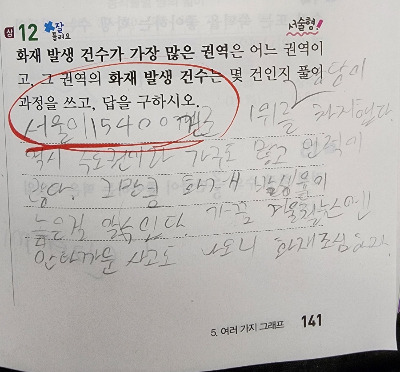 상 12 잘 틀려요 서술형!
화재 발생 건수가 가장 많은 권역은 어느 권역이
고, 그 권역의 화재 발생 건수는 몇 건인지 풀이
과정을 쓰고, 답을 구하시오. 당당이
서울이 15400개로 1위를 차지했다.
역시 수도권이라 가구도 많고 인력이
많다. 그만큼 화재 발생률이
높은것 같다. 가끔
안타까운 사고도 나오니 화재조심하자.
5. 여러 가지 그래프 141